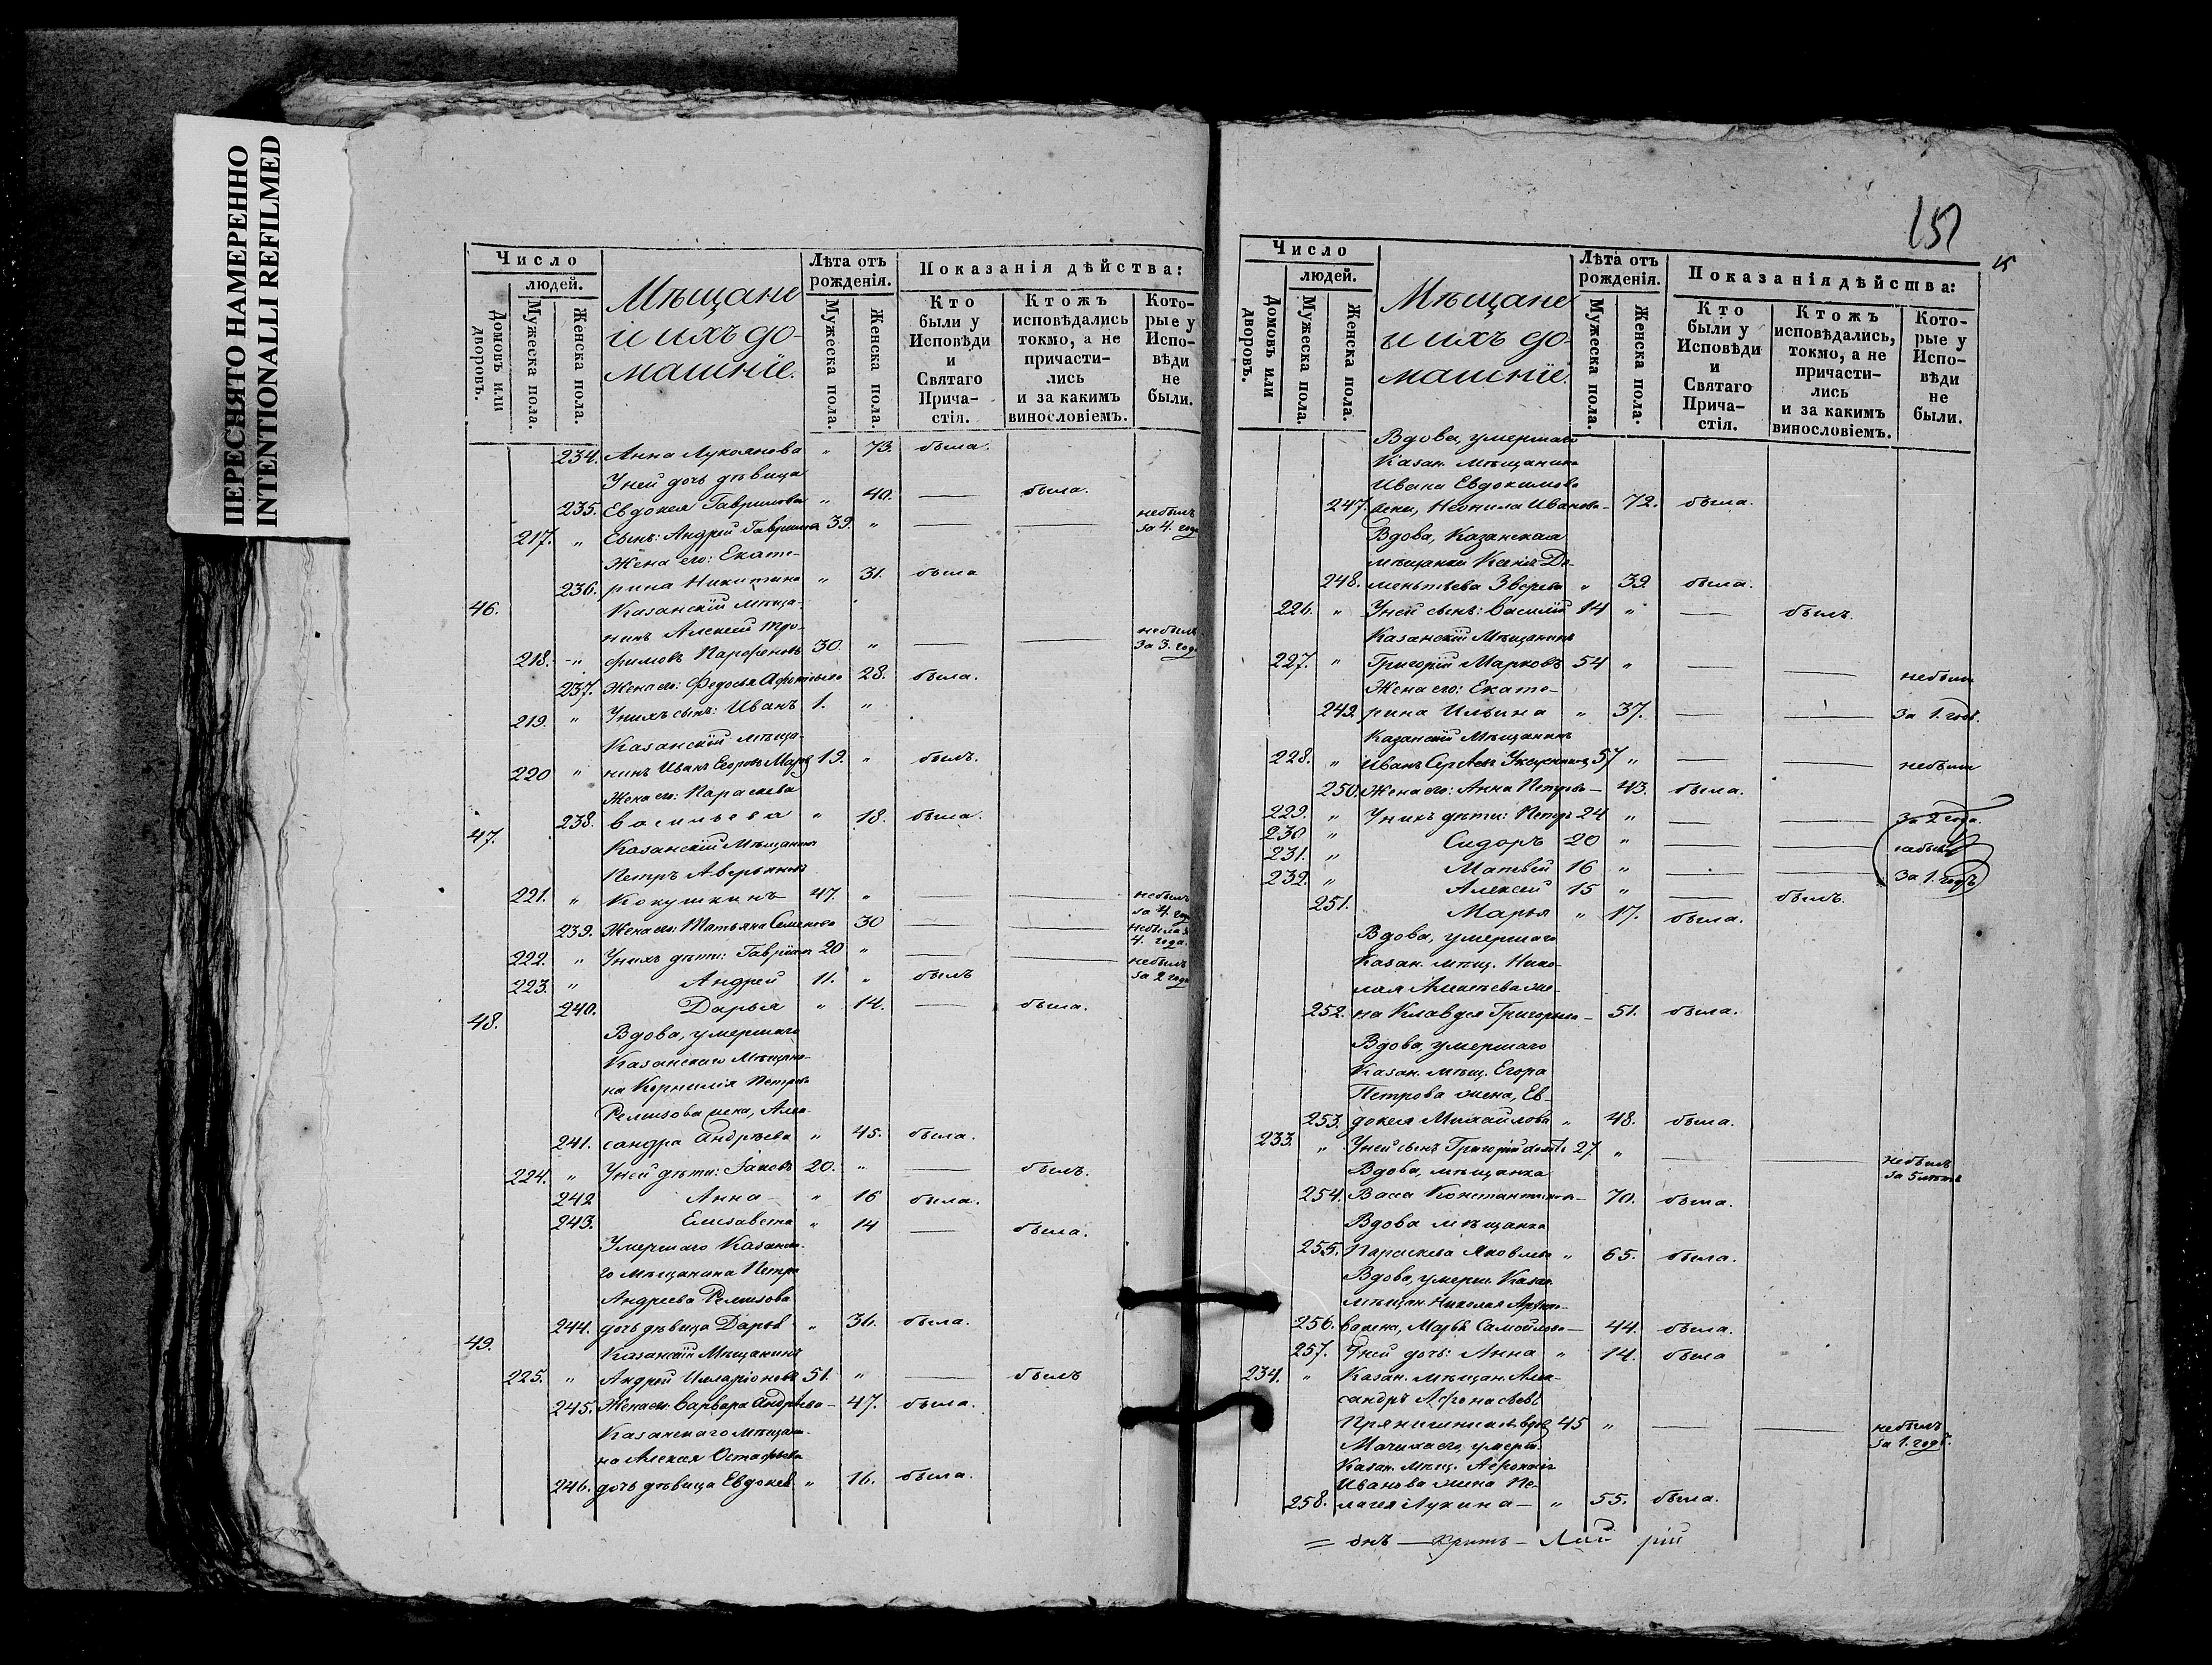 ПЕРЕСНЯТО НАМЕРЕННО
INTENTIONALLI REFILMED
Число
людей.
Домовъ или дворовъ.
Мужеска пола.
Женска пола.
Мѣщане
и ихъ до-
машніе.
Лѣта отъ
рожденія.
Мужеска пола.
Женска пола.
Показанія дѣйства:
Кто были у Исповѣди и Святаго Прича- стія.
Ктожъ исповѣдались токмо, а не причасти- лись и за какимъ винословіемъ.
Кото- рые у Испо- вѣди не были.
234. Анна Лукоянова " 73. была.
У ней дочь дѣвица
235. Евдокея Гаврилова " 40. — была.
217. " Сынъ: Андрей Гавриловъ 39. " — — небылъ за 4. года
Жена его: Екате-
236. рина Никитина " 31. была
46. Казанскій мѣща-
нинъ Алексей
218. " фимовъ Парфеновъ 30. " — — небылъ за 3. года
237. Жена его: Федосья 28. была.
219. " У нихъ сынъ: Иванъ 1. "
Казанскій мѣща-
220 " нинъ Иванъ Егоровъ 19. " былъ.
Жена его: Параскева
238. Васильева " 18. была.
47. Казанскій Мѣщанинъ
Петръ Аверьяновъ
221. " Кокушкинъ 47. " — — небылъ за 4. года
239. Жена его: Татьяна Семенова 30 — — небыла за 4. года.
222. " У нихъ дѣти: Гаврiилъ 20 " — — небылъ за 2 года
223. " Андрей 11. " былъ
240. Дарья " 14. — была.
48. Вдова, умершаго
Казанскаго Мѣщани-
на Корнилія Петрова
Ремизова жена, Алек-
241. сандра Андрѣева " 45. была.
224. " У ней дѣти: Іаковъ 20. " — былъ.
242 Анна " 16 была.
243. Елисавета " 14 — была.
Умершаго Казанска-
го Мѣщанина Петра
Андреева Ремизова
244. дочь дѣвица Дарья " 36. была.
49. Казанскій Мѣщанинъ
225. " Андрей Илларіоновъ 51. " — былъ
245. Жена его: Варвара Андрѣева — 47. была.
Казанскаго мѣщани-
на Алексея Остафьева
246. дочь дѣвица Евдокея " 16. была.
151
Число
людей.
Домовъ или дворовъ.
Мужеска пола.
Женска пола.
Мѣщане
и ихъ до-
машніе.
Лѣта отъ
рожденія.
Мужеска пола.
Женска пола.
Показанія дѣйства:
Кто были у Исповѣди и Святаго Прича- стія.
Ктожъ исповѣдались, токмо, а не причасти- лись и за какимъ винословіемъ.
Кото- рые у Испо- вѣди не были.
Вдова, умершаго
Казан. мѣщанина
Ивана Евдокимова
247. жена, Неонила Иванова — 72. была.
Вдова, Казанская
мѣщанка Ксенія Де-
248. ментьева Зверева " 39 была.
226. " У ней сынъ: Василій 14 " — былъ.
Казанскій Мѣщанинъ
227. " Григорій Марковъ 54 " — — небыли
Жена его: Екате-
249. рина Ильина " 37. — — За 1. годъ.
Казанскій Мѣщанинъ
228. " Иванъ Сергѣевъ 57 " — — небыли
250. Жена его: Анна Петрова — 43. была.
229. " У нихъ дѣти: Петръ 24 " — — За 2 года.
230 " Сидоръ 20 " — — небыли
231. " Матвей 16 " — — За 1. годъ
232. " Алексей 15 " — былъ.
251. Марья " 17. была.
Вдова, умершаго
Казан. мѣщ. Нико-
лая Алексѣева же-
252. на Клавдея Григорьева — 51. была.
Вдова, умершаго
Казан. мѣщ. Егора
Петрова жена, Ев-
253. докея Михайлова " 48. была.
233. " У ней сынъ Григорій 27 " — небылъ за 5 лѣтъ
Вдова, мѣщанка
254. Васса Константинова — 70. была.
Вдова мѣщанка
255. Параскева Яковлева " 65. была.
Вдова, умерш. Казан.
мѣщан. Николая
256. ва жена, Марья Самойлова — 44. была.
257. У ней дочь: Анна " 14. была
234. " Казан. мѣщан. Алек-
сандръ Афонасьевъ
Пряничниковъ вдов. 45 " — — небылъ за 1. годъ.
Мачиха его, умерш.
Казан. мѣщ. Афонасія
Иванова жена Пе-
258. лагея Лукина — " 55. была.